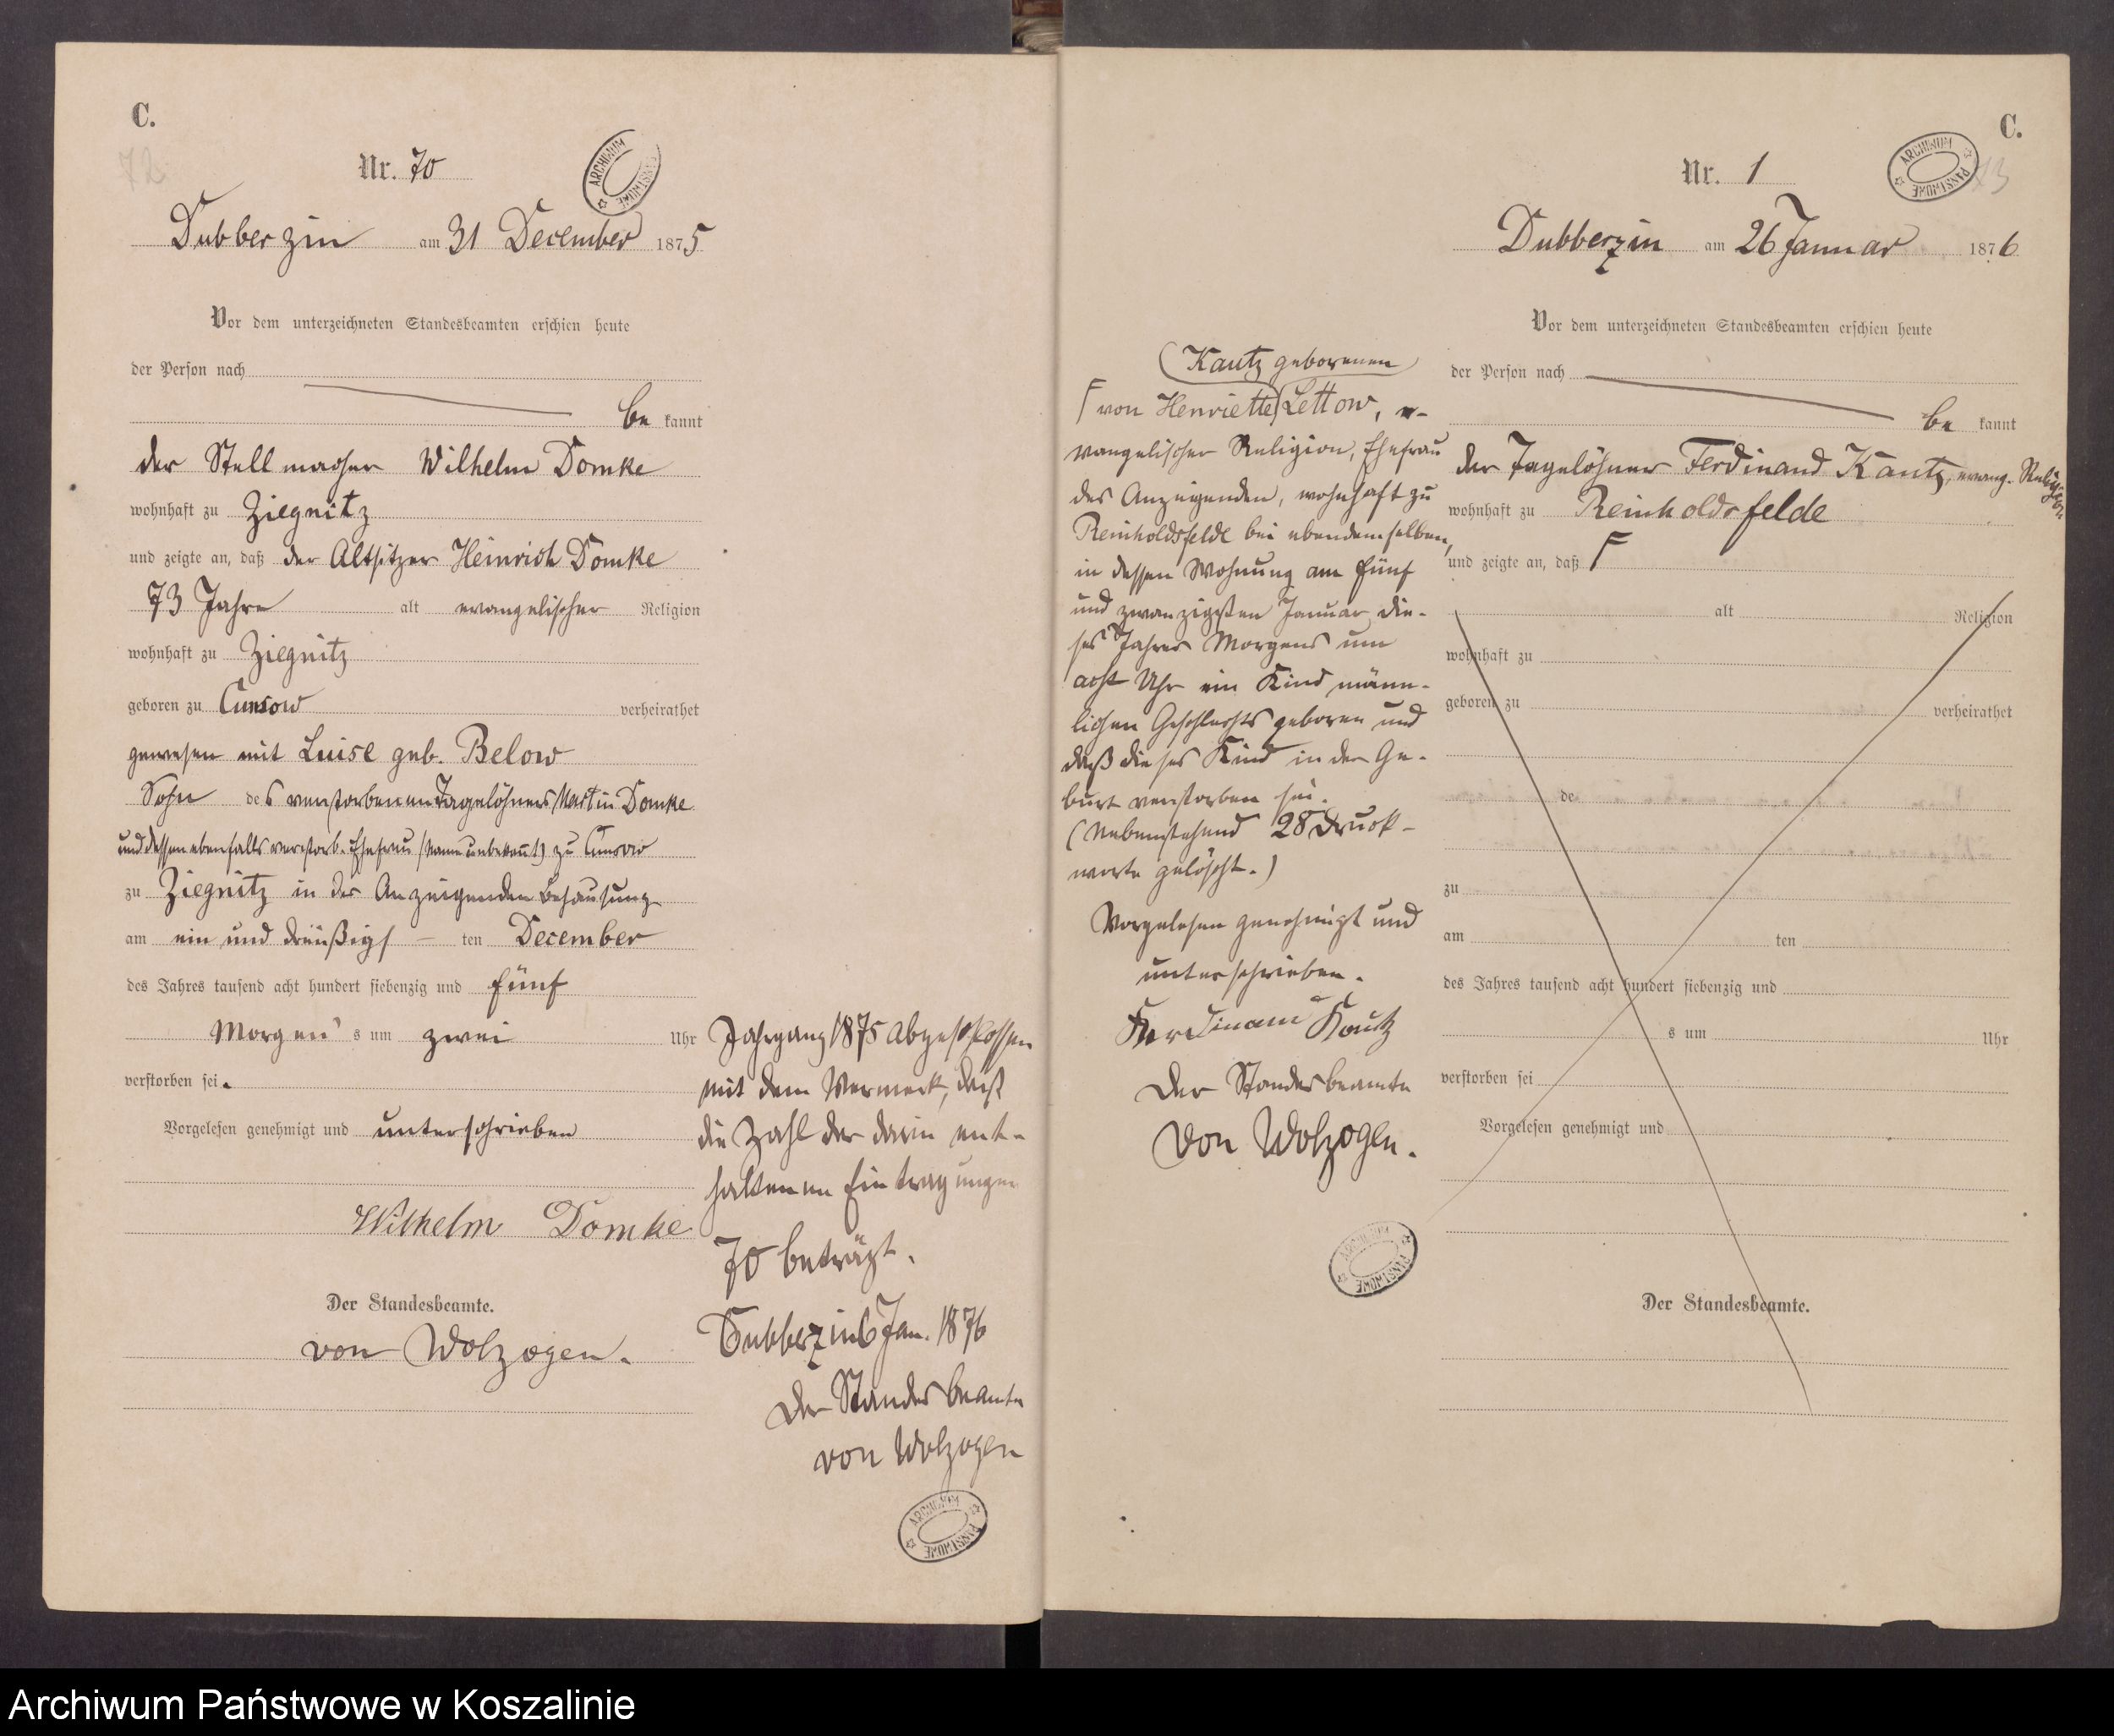 C.
72
Nr. 70
ARCHIWUM PAŃSTWOWE
Dubberzin am 31 December 1875
Vor dem unterzeichneten Standesbeamten erschien heute
der Person nach
be kannt
der Stellmacher Wilhelm Domke
wohnhaft zu Ziegnitz
und zeigte an, daß der Altsitzer Heinrich Domke
73 Jahre alt evangelischer Religion
wohnhaft zu Ziegnitz
geboren zu Cunsow verheirathet
gewesen mit Luise geb. Below
Sohn des verstorbenen Tagelöhners Martin Domke
und dessen ebenfalls verstorb. Ehefrau (Name unbekannt) zu Cunsow
zu Ziegnitz in des Anzeigenden Behausung
am ein und dreißigs - ten December
des Jahres tausend acht hundert siebenzig und fünf
Morgen's um zwei Uhr
verstorben sei.
Vorgelesen genehmigt und unterschrieben
Wilhelm Domke
Der Standesbeamte.
von Wolzogen.
Jahrgang 1875 abgeschlossen
mit dem Vermerk, daß
die Zahl der darin ent-
haltenen Eintragungen
70 beträgt.
Dubberzin 6 Jan. 1876
Der Standesbeamte
von Wolzogen
ARCHIWUM PAŃSTWOWE
C.
73
Nr. 1
ARCHIWUM PAŃSTWOWE
Dubberzin am 26 Januar 1876
Vor dem unterzeichneten Standesbeamten erschien heute
der Person nach
be kannt
der Tagelöhner Ferdinand Kautz, evang. Religion
wohnhaft zu Reinholdsfelde
und zeigte an, daß F
alt Religion
wohnhaft zu
geboren zu verheirathet
de
zu
am ten
des Jahres tausend acht hundert siebenzig und
s um Uhr
verstorben sei
Vorgelesen genehmigt und
Der Standesbeamte.
(Kautz geborenen)
F von Henriette Lettow, e-
vangelischer Religion, Ehefrau
des Anzeigenden, wohnhaft zu
Reinholdsfelde bei ebendemselben,
in dessen Wohnung am fünf
und zwanzigsten Januar die-
ses Jahres Morgens um
acht Uhr ein Kind männ-
lichen Geschlechts geboren und
daß dieses Kind in der Ge-
burt verstorben sei.
(Nebenstehend 28 Druck-
worte gelöscht.)
Vorgelesen genehmigt und
unterschrieben.
Ferdinand Kautz
Der Standesbeamte
von Wolzogen.
ARCHIWUM PAŃSTWOWE
Archiwum Państwowe w Koszalinie